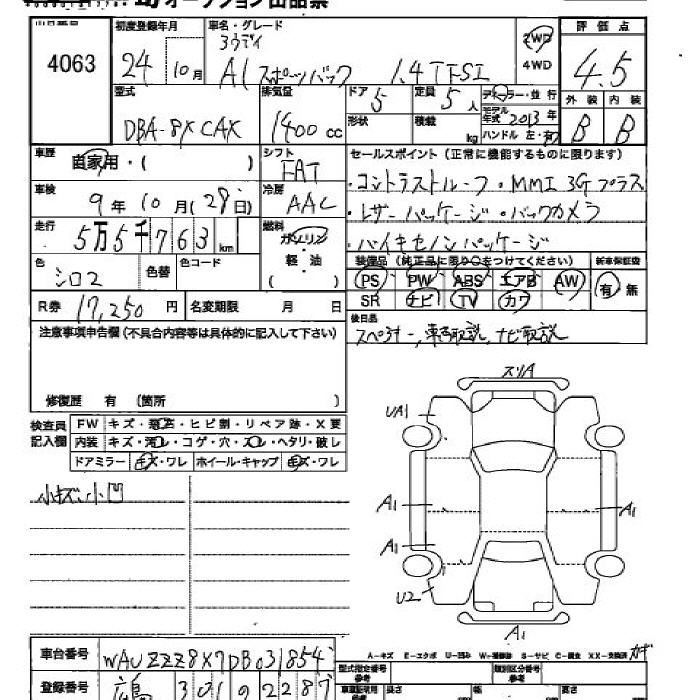 オークション出品票
4063
初度登録年月
24 10月
車名・グレード
アウディ
A1 スポーツバック 1.4TFSI
2WD
4WD
評価点
4.5
型式
DBA-8XCAX
排気量
1400cc
ドア 5
定員 5人
形状
積載 kg
ディーラー・並行
モデル年式 2013年
ハンドル 左・右
外装 内装
B B
車歴
自家用・(
シフト
FAT
セールスポイント(正常に機能するものに限ります)
・コントラストルーフ・MMI 3Gプラス
・レザーパッケージ・バックカメラ
・バイキセノンパッケージ
車検
9年10月(28日)
冷房
AAC
走行
5万5千763km
燃料
ガソリン
軽・油
( )
色
シロ2
色替
色コード
装備品(純正品に限り○をつけてください)
新車保証書
PS PW ABS エアB AW
有・無
SR ナビ TV カワ
R券 17,250円
名変期限 月 日
後日品
スペアキー、車両取説、ナビ取説
注意事項申告欄(不具合内容等は具体的に記入して下さい)
修復歴 有 (箇所 )
検査員
記入欄
FW キズ・飛石・ヒビ割・リペア跡・X要
内装 キズ・汚レ・コゲ・穴・スレ・ヘタリ・破レ
ドアミラー キズ・ワレ ホイール・キャップ キズ・ワレ
小キズ小凹
スリA
UA1
A1
A1
A1
U2
A1
A-キズ E-エクボ U-凹み S-サビ C-腐食 XX-交換済
車台番号
WAUZZZ8X7DB031854
登録番号
301 2287
型式指定番号
参考
類別区分番号
参考
長さ
幅
高さ